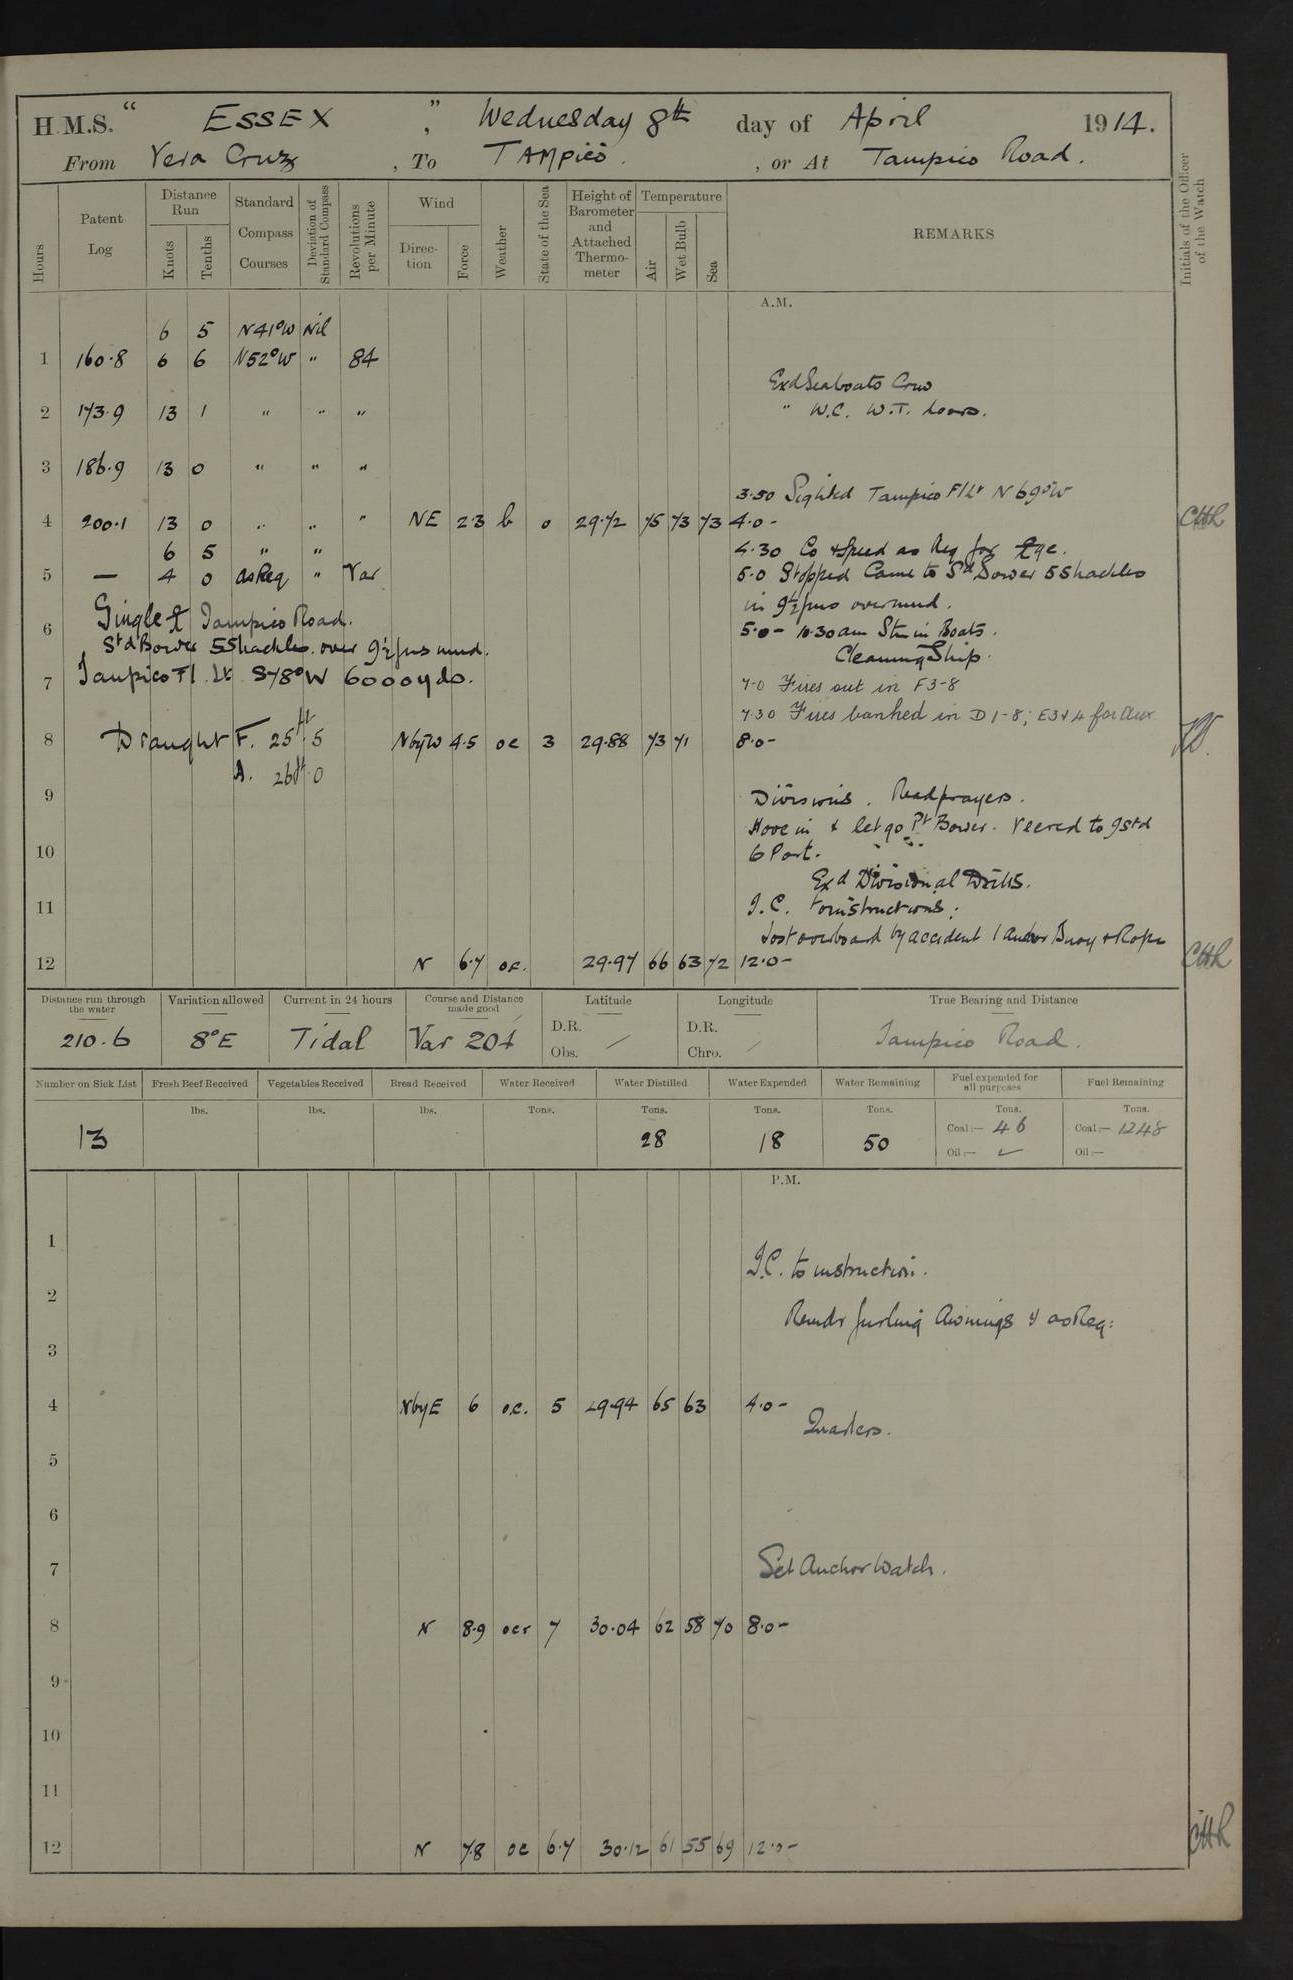 H.M.S. " ESSEX ", Wednesday 8th day of April 1914.
From Vera Cruz, To TAMPICO, or At Tampico Road.
Hours Patent Log Distance Run Knots Tenths Standard Compass Courses Deviation of Standard Compass Revolutions per Minute Wind Direction Force Weather State of the Sea Height of Barometer and Attached Thermometer Temperature Air Wet Bulb Sea REMARKS Initials of the Officer of the Watch
A.M.
6 5 N41°W Nil
1 160.8 6 6 N52°W " 84
Exd Seaboats Crew
2 173.9 13 1 " " " " W.C. W.T. doors.
3 186.9 13 0 " " "
3.50 Sighted Tampico Fl Lt N69°W
4 200.1 13 0 " " " NE 2.3 b 0 29.72 75 73 73 4.0- CHR
6 5 " " 4.30 Co & Speed as Req for
5 — 4 0 as Req " Var 5.0 Stopped Came to Std Bower 5 Shackles
in 9½ fms over mud.
6 Single Tampico Road.
5.0 - 10.30 am Stm in Boats.
Std Bower 5 Shackles. over 9½ fms mud.
Cleaning Ship.
7 Tampico Fl. Lt. S78°W 6000 yds.
7.0 Fires out in F3-8
7.30 Fires banked in D1-8; E3&4 for Aux
8 Draught F. 25 ft. 5 NbyW 4.5 oc 3 29.88 73 71 8.0-
A. 26 ft. 0
9 Divisions. Read prayers.
Hove in & let go Pt Bower. Veered to 9 Std
10 6 Port.
Exd Divisional Drills.
11 I.C. to instructions:
Lost overboard by accident 1 Anchor Buoy & Rope
12 N 6.7 oc. 29.97 66 63 72 12.0- CHR
Distance run through the water Variation allowed Current in 24 hours Course and Distance made good Latitude Longitude True Bearing and Distance
210.6 8°E Tidal Var 204 D.R. Obs. D.R. Chro. Tampico Road.
Number on Sick List Fresh Beef Received Vegetables Received Bread Received Water Received Water Distilled Water Expended Water Remaining Fuel expended for all purposes Fuel Remaining
lbs. lbs. lbs. Tons. Tons. Tons. Tons. Tons. Tons.
13 28 18 50 Coal:— 46 Coal:— 1248
Oil:— Oil:—
P.M.
1
I.C. to instruction.
2
Hands furling Awnings & as Req:
3
4 NbyE 6 o.c. 5 29.94 65 63 4.0-
Quarters.
5
6
7 Set Anchor Watch.
8 N 8.9 ocr 7 30.04 62 58 70 8.0-
9
10
11
12 N 7.8 oc 6.7 30.12 61 55 69 12.0- CHR